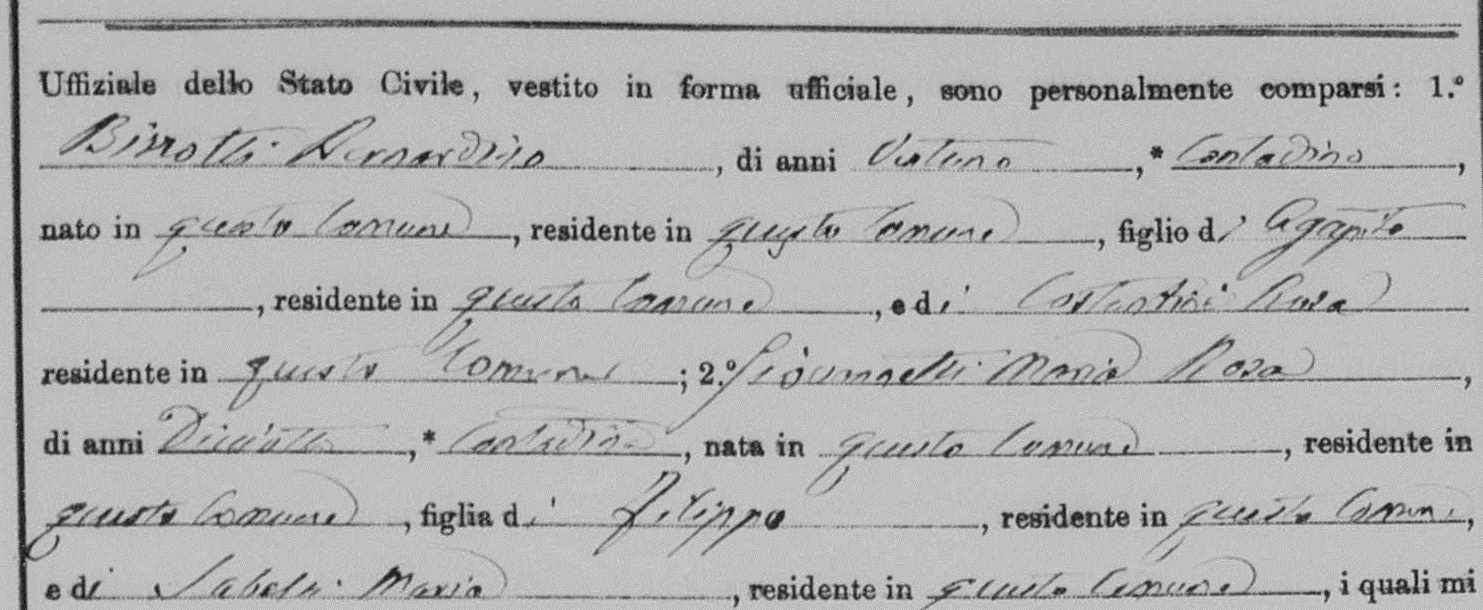 Uffiziale dello Stato Civile, vestito in forma ufficiale, sono personalmente comparsi: 1.°
Bernardino, di anni Ventuno, * Contadino,
nato in questo Comune, residente in questo Comune, figlio di Agapito
, residente in questo Comune, e di Costantini Rosa
residente in questo Comune; 2.° Giovannetti Maria Rosa,
di anni Diciotto, * Contadina, nata in questo Comune, residente in
questo Comune, figlia di Filippo, residente in questo Comune,
e di Maria, residente in questo Comune, i quali mi